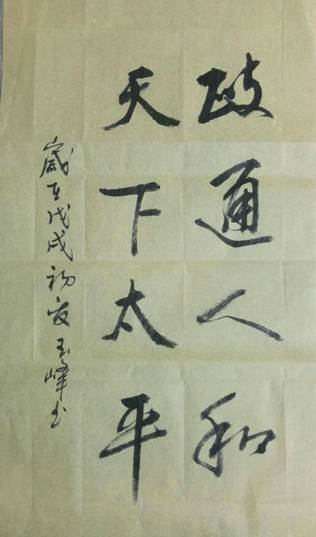 政通人和
天下太平
歲在戊戌初夏玉峰书